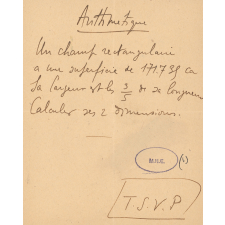 Arithmétique
Un champ rectangulaire
a une superficie de 171.735 ca
Sa largeur est les 3/5 de sa longueur
Calculer ses 2 dimensions.
T.S.V.P